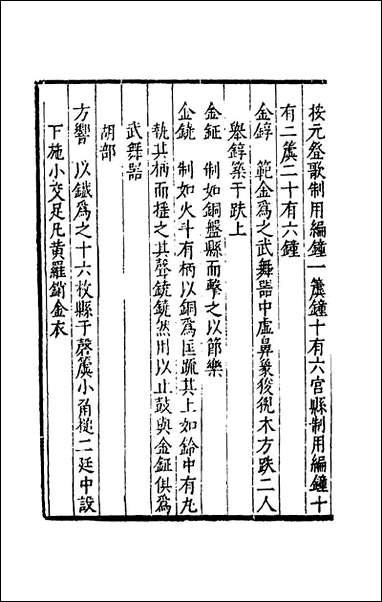 按元登歌制用編鐘一簴鐘十有六宮縣制用編鐘十
有二簴二十有六鐘
金錞　範金爲之武舞器中虛鼻象狻猊木方趺二人
舉錞築于趺上
金鉦　制如銅盤縣而擊之以節樂
金鐃　制如火斗有柄以銅爲匡疏其上如鈴中有丸
執其柄而搖之其聲鐃鐃然用以止鼓與金鉦俱爲
武舞器
胡部
方響　以鐵爲之十六枚縣于磬簴小角槌二廷中設
下施小交足几黄羅銷金衣